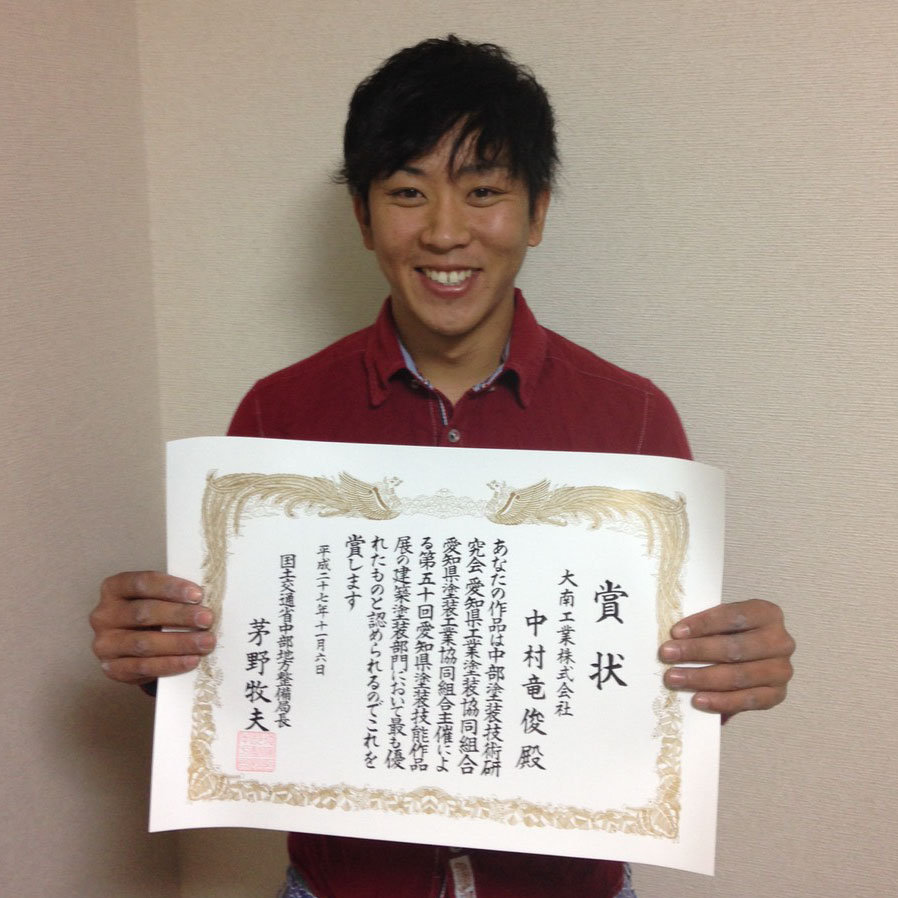 賞状
大南工業株式会社
中村竜俊殿
あなたの作品は中部塗装技術研
究会 愛知県工業塗装協同組合
愛知県塗装工業協同組合主催によ
る第五十回愛知県塗装技能作品
展の建築塗装部門において最も優
れたものと認められるのでこれを
賞します
平成二十七年十一月六日
国土交通省中部地方整備局長
茅野牧夫